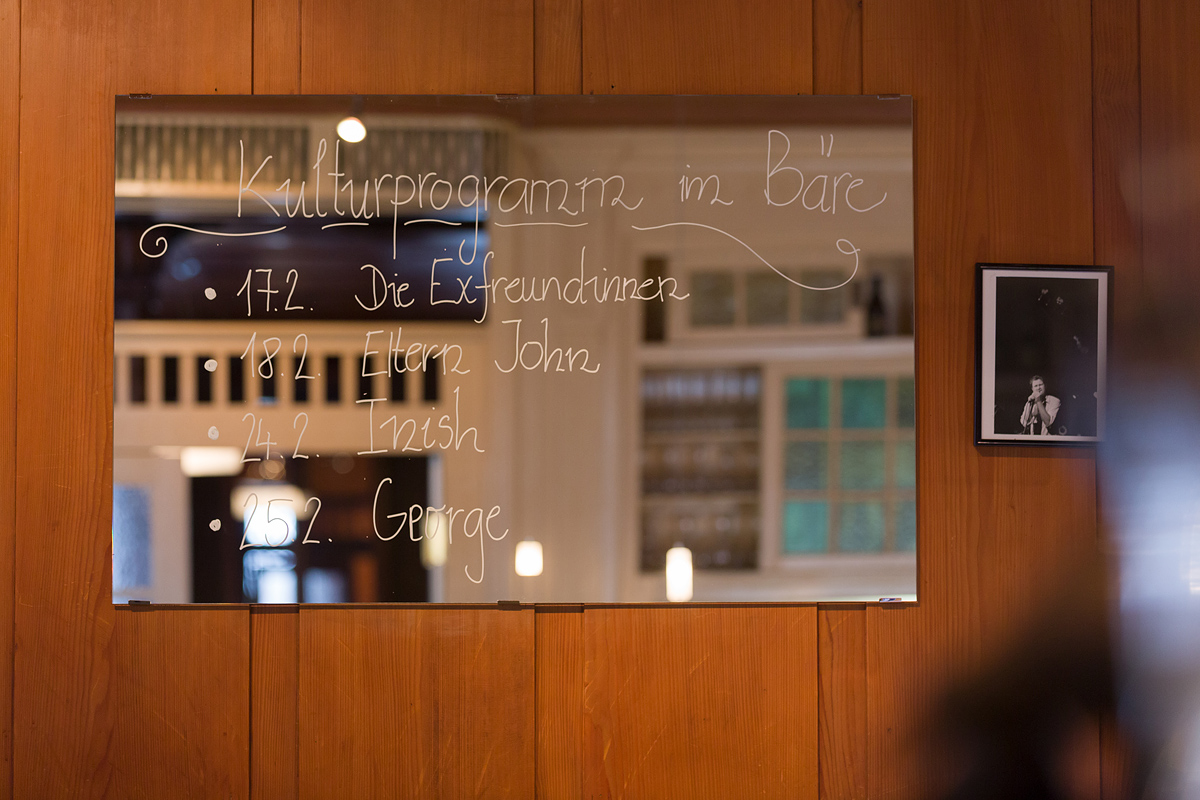 Kulturprogramm im Bäre
• 17.2. Die Exfreundinnen
• 18.2. Eltern John
• 24.2. Inish
• 25.2. George